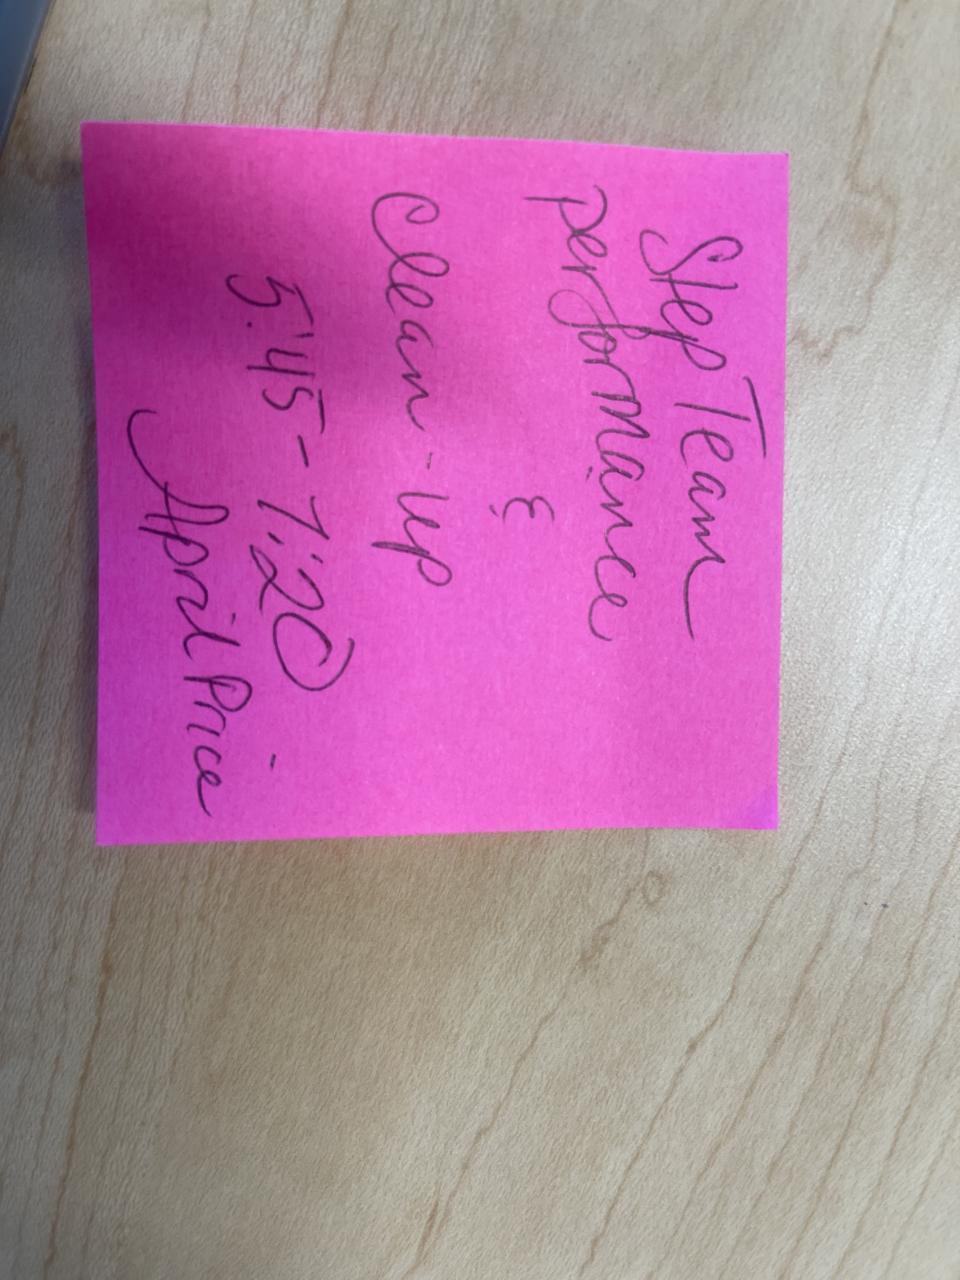 Step Team
performance
&
Clean-up
5:45-7:20
April Price